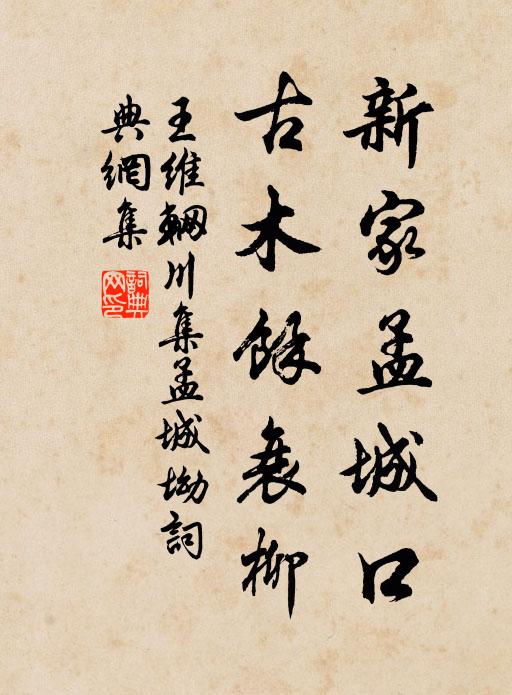 新家孟城口
古木餘衰柳
王維輞川集孟城坳詞
典網集
詞典网印